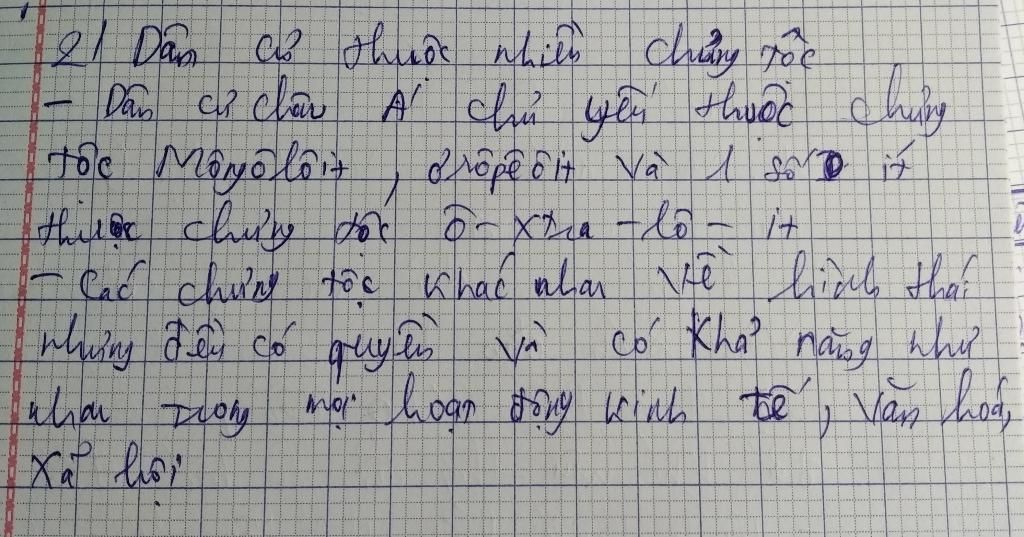 2/ Dân cư thuộc nhiều chủng tộc
- Dân cư châu Á chủ yếu thuộc chủng
tộc Môngôlôit, ơrôpêôit và 1 số ít
thuộc chủng tộc Ô-xtra-lô-it
- Các chủng tộc khác nhau về hình thái
nhưng đều có quyền và có khả năng như
nhau trong mọi hoạt động kinh tế, văn hoá,
xã hội